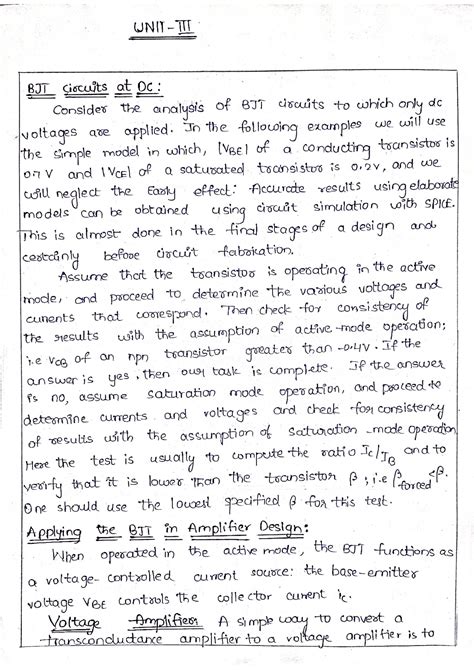 UNIT-III
BJT circuits at DC:
Consider the analysis of BJT circuits to which only dc
voltages are applied. In the following examples we will use
the simple model in which, |VBE| of a conducting transistor is
0.7 V and |VCE| of a saturated transistor is 0.2V, and we
will neglect the Early effect: Accurate results using elaborate
models can be obtained using circuit simulation with SPICE.
This is almost done in the final stages of a design and
certainly before circuit fabrication.
Assume that the transistor is operating in the active
mode, and proceed to determine the various voltages and
currents that correspond. Then check for consistency of
the results with the assumption of active-mode operation;
i.e VCB of an npn transistor greater than -0.4V. If the
answer is yes, then our task is complete. If the answer
is no, assume saturation mode operation, and proceed to
determine currents and voltages and check for consistency
of results with the assumption of saturation-mode operation
Here the test is usually to compute the ratio IC/IB and to
verify that it is lower than the transistor β; i.e βforced <β.
One should use the lowest specified β for this test.
Applying the BJT in Amplifier Design:
When operated in the active mode, the BJT functions as
a voltage-controlled current source: the base-emitter
voltage VBE controls the collector current ic.
Voltage Amplifier: A simple way to convert a
transconductance amplifier to a voltage amplifier is to